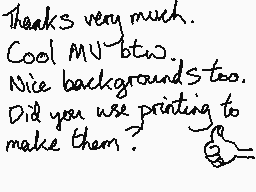 Thanks very much.
Cool MV btw.
Nice backgrounds too.
Did you use printing to
make them?